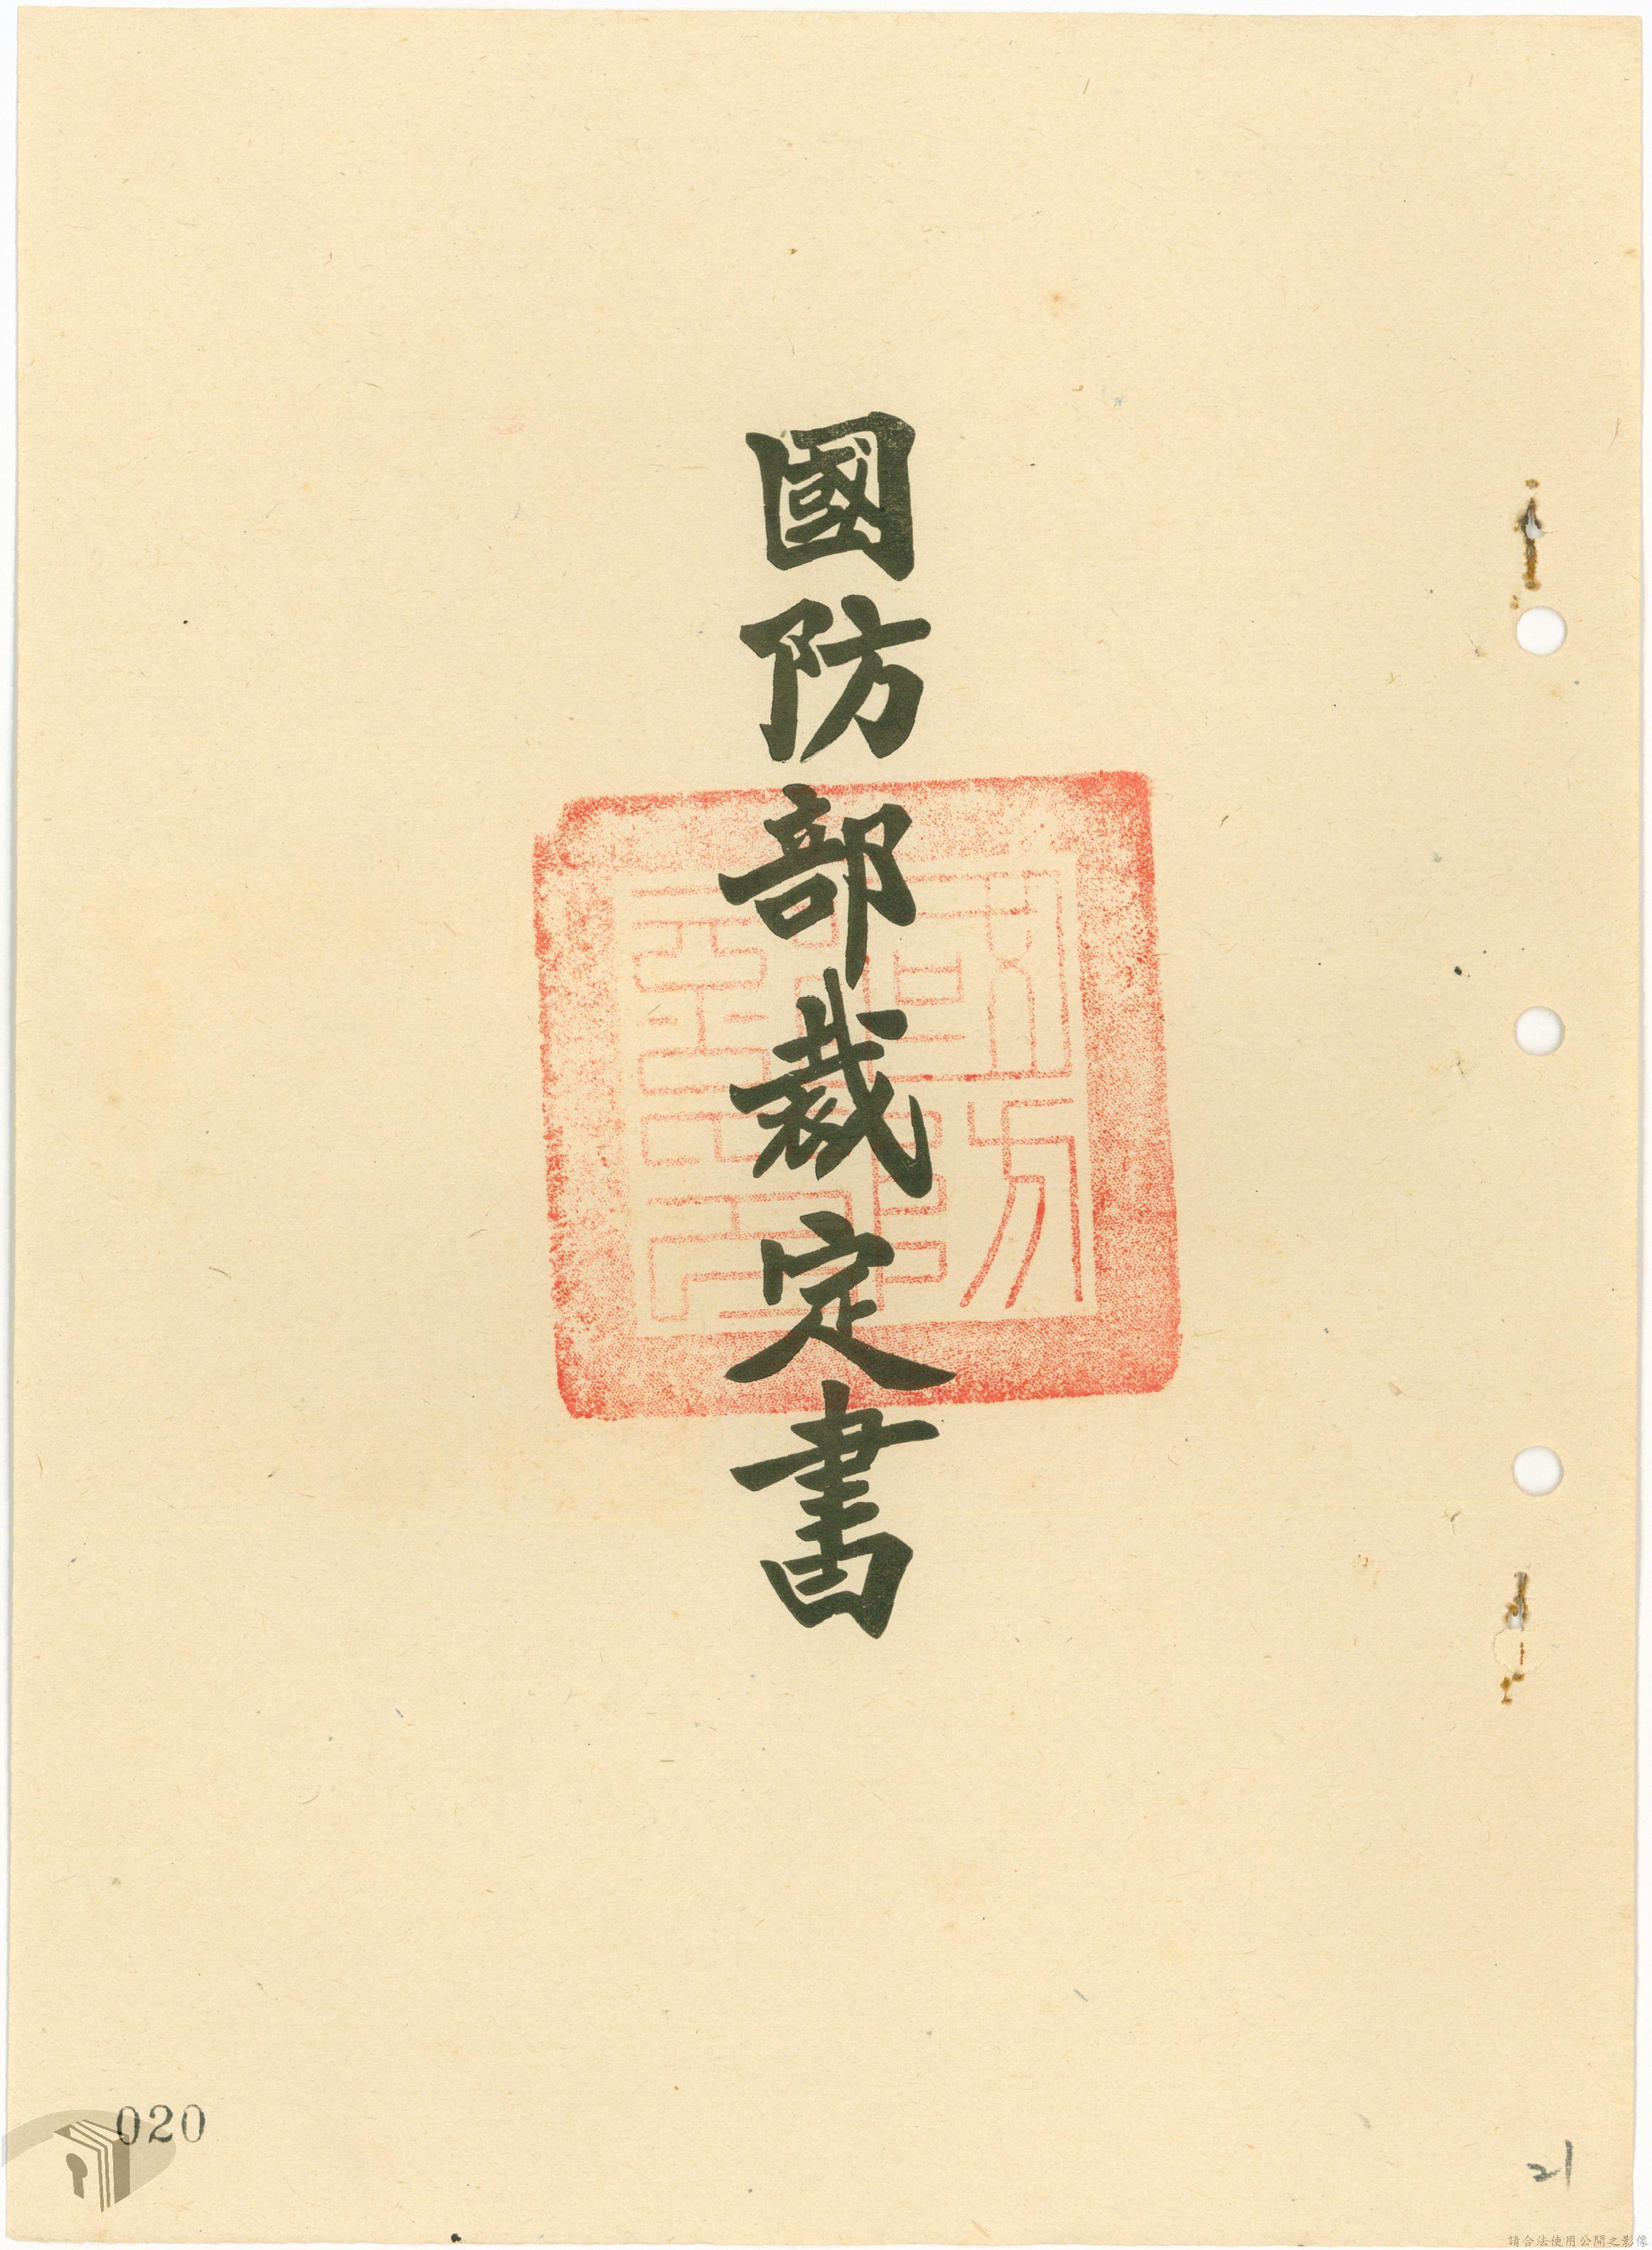 國防部裁定書
020
21
請合法使用公開之影像